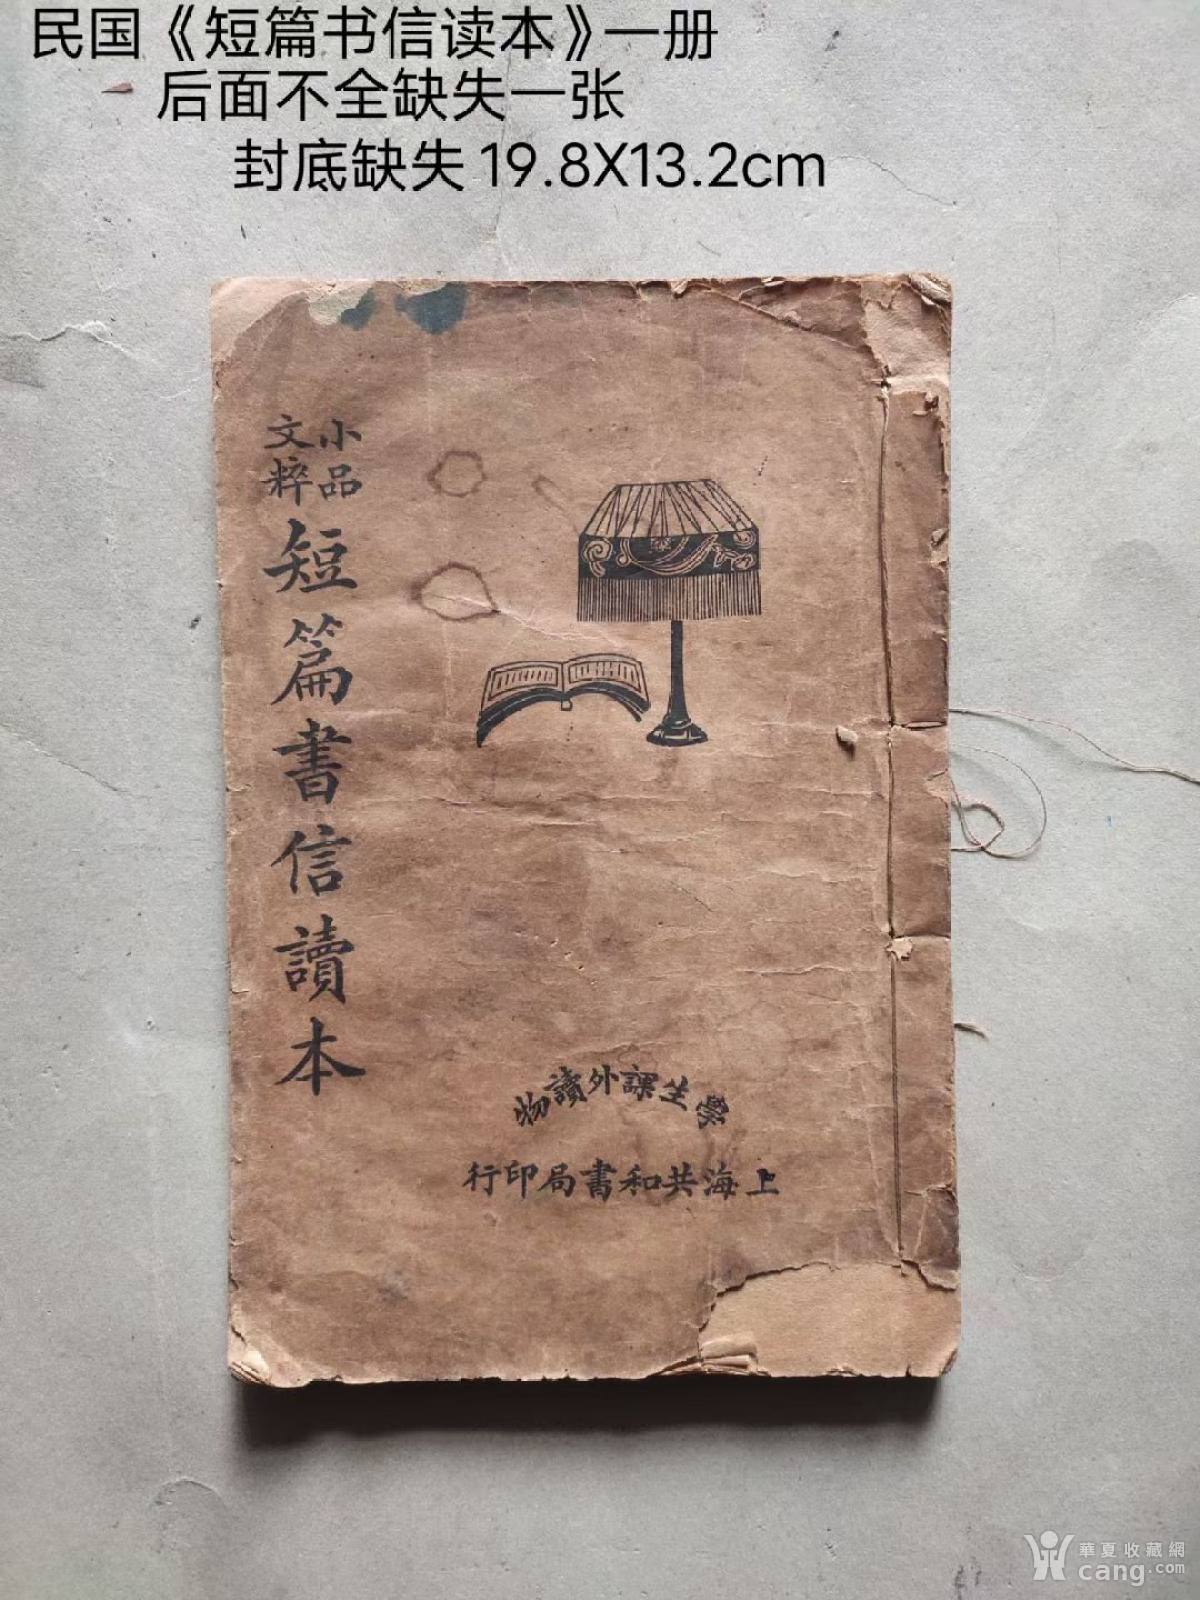 民国《短篇书信读本》一册
后面不全缺失一张
封底缺失 19.8X13.2cm
小品
文粹
短篇書信讀本
學生課外讀物
上海共和書局印行
華夏收藏網
cang.com